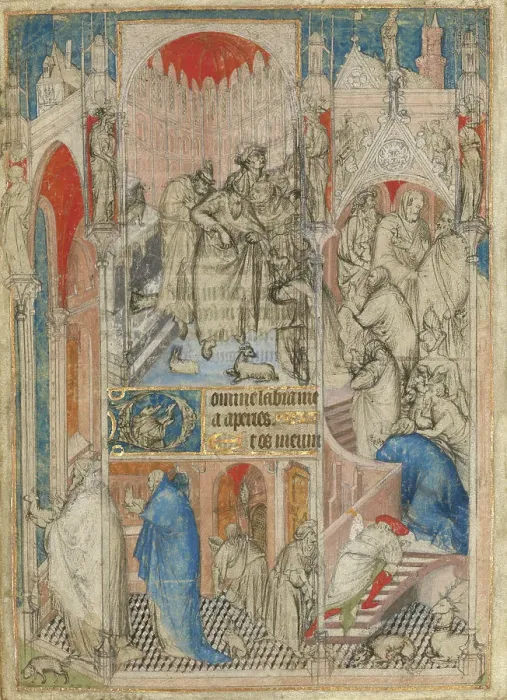 omine labia me
a aperies
t os meum